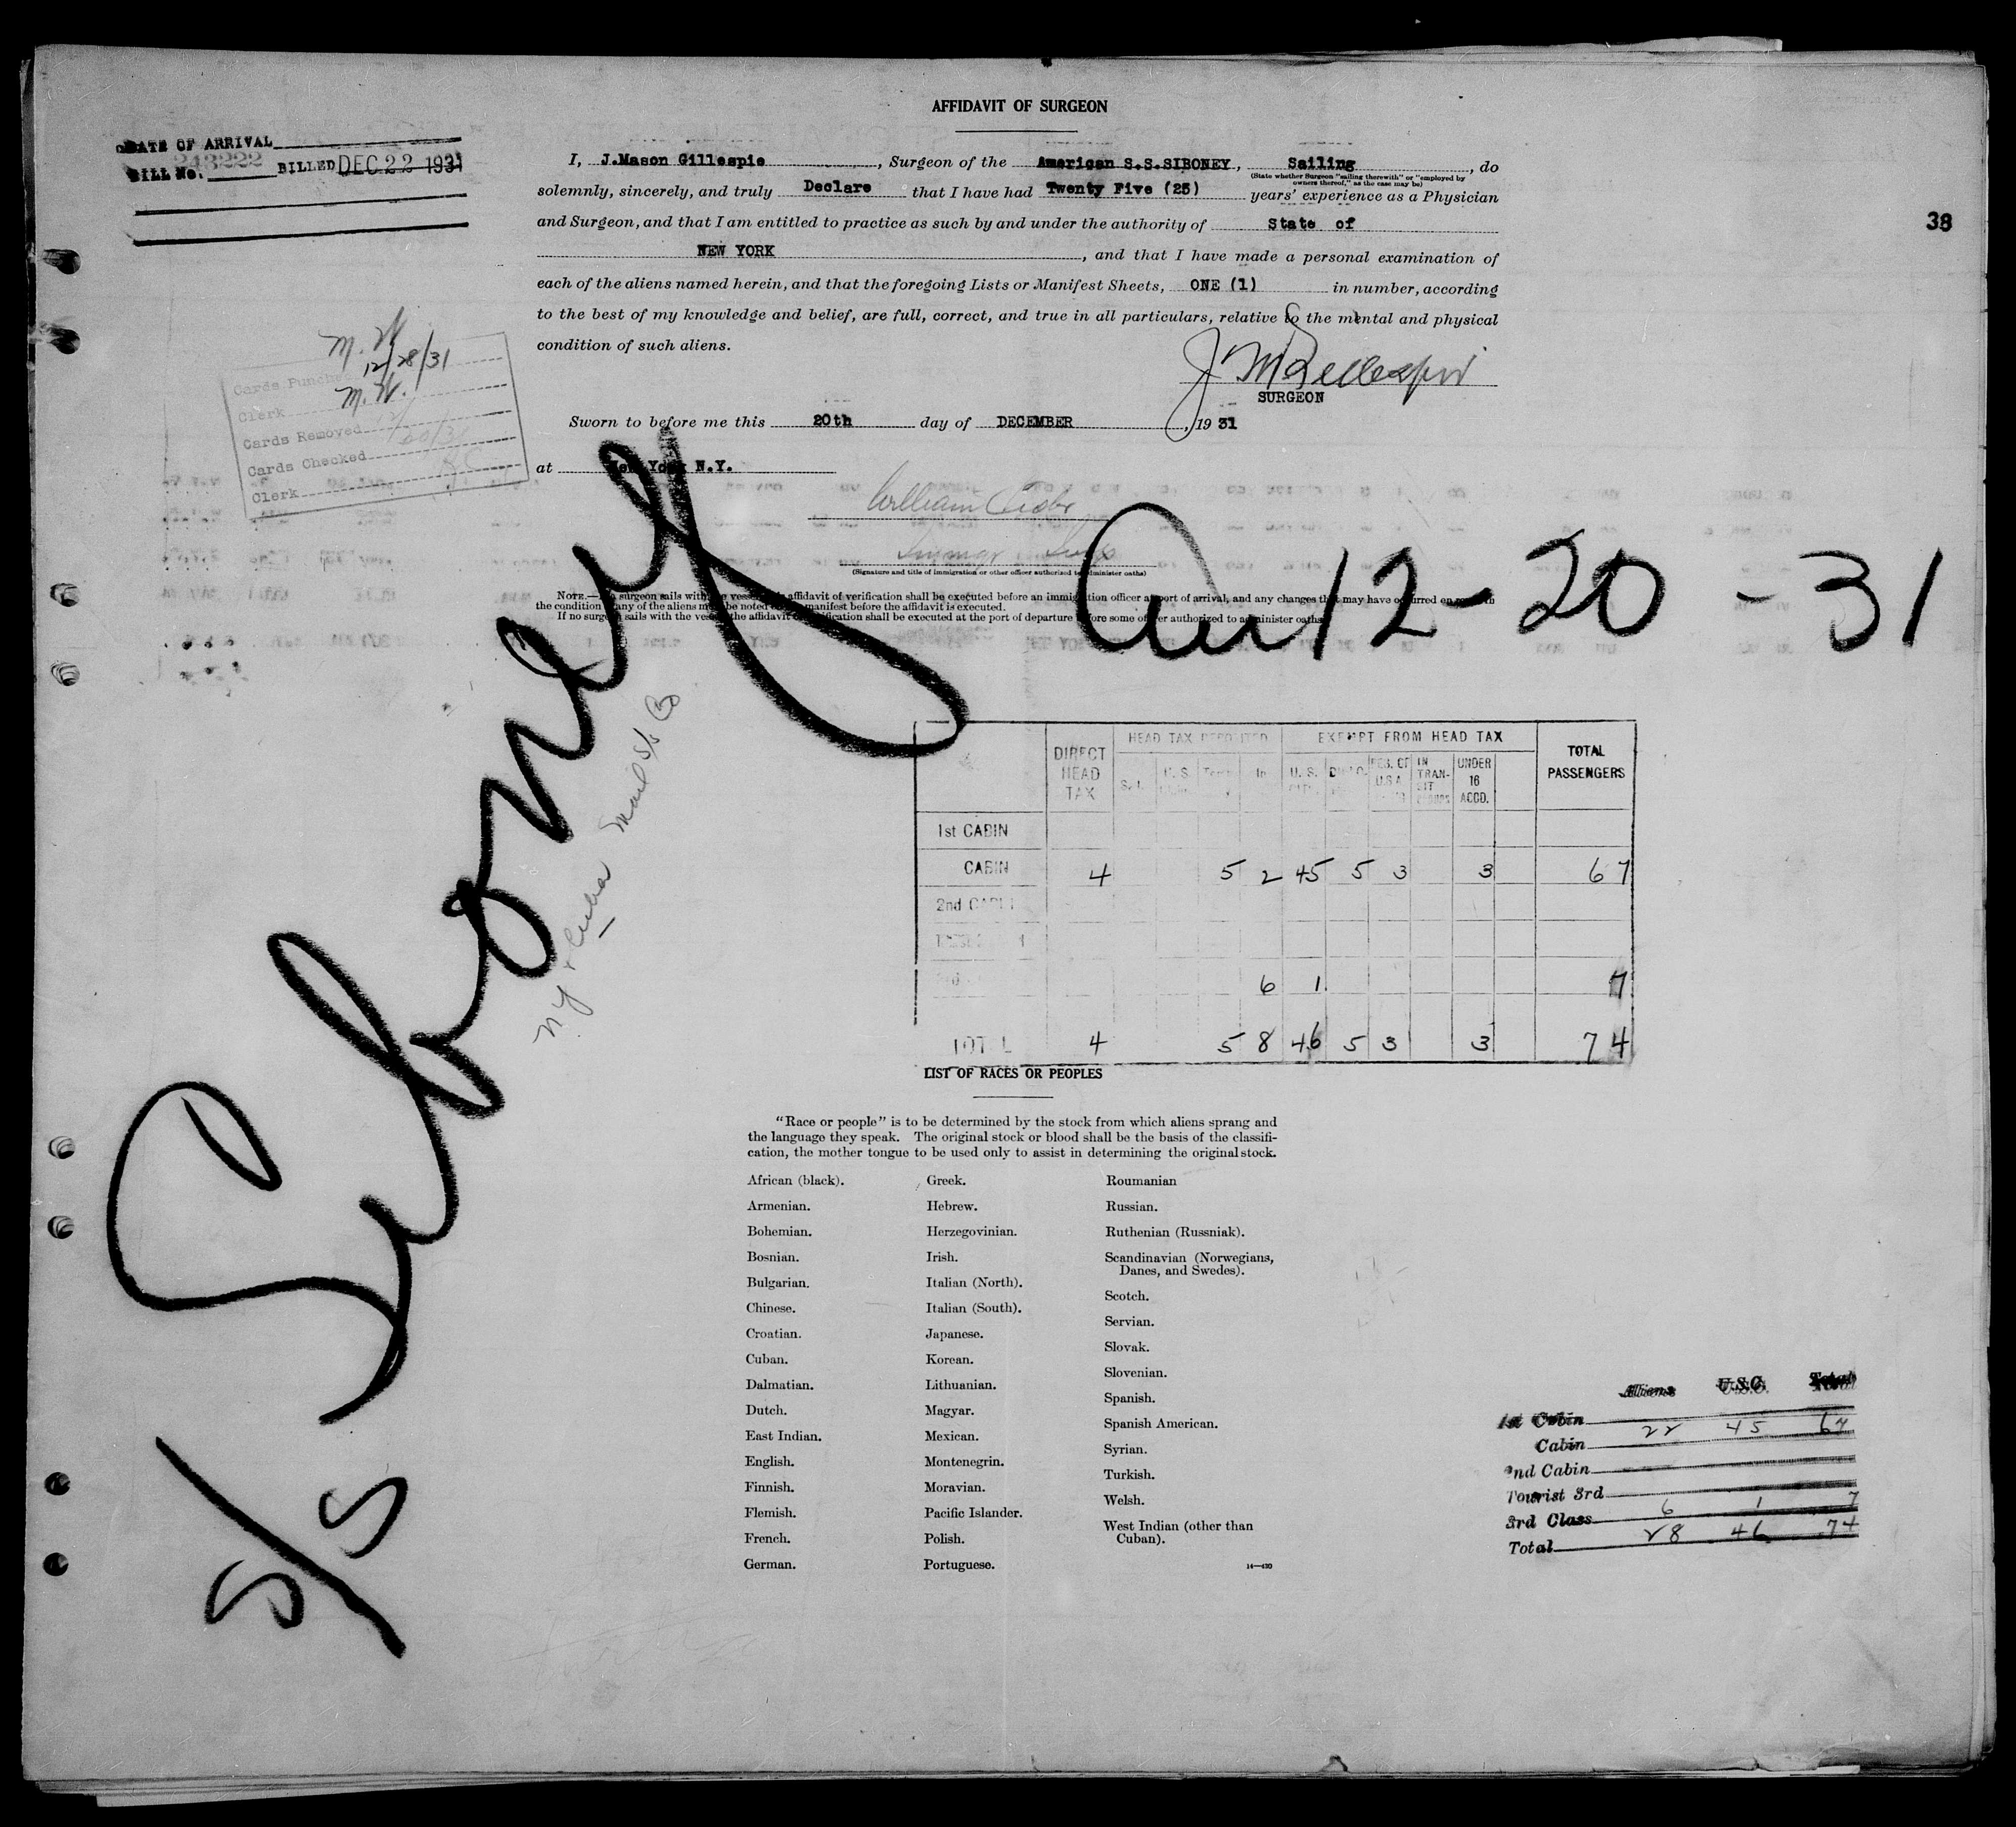 AFFIDAVIT OF SURGEON
DATE OF ARRIVAL
BILL No. 243222 BILLED DEC 22 1931
38
I, J.Mason Gillespie, Surgeon of the American S.S.SIBONEY, Sailing, do
(State whether Surgeon "sailing therewith" or "employed by
owners thereof," as the case may be)
solemnly, sincerely, and truly Declare that I have had Twenty Five (25) years' experience as a Physician
and Surgeon, and that I am entitled to practice as such by and under the authority of State of
NEW YORK, and that I have made a personal examination of
each of the aliens named herein, and that the foregoing Lists or Manifest Sheets, ONE (1) in number, according
to the best of my knowledge and belief, are full, correct, and true in all particulars, relative to the mental and physical
condition of such aliens.
J M Gillespie
SURGEON
M. W.
Cards Punched 12/28/31
Clerk M. W.
Cards Removed
Cards Checked
Clerk
Sworn to before me this 20th day of DECEMBER, 19 31
at New York N.Y.
William
(Signature and title of immigration or other officer authorized to administer oaths)
NOTE.—If a surgeon sails with the vessel, this affidavit of verification shall be executed before an immigration officer at port of arrival, and any changes that may have occurred en route in
the condition of any of the aliens must be noted on the manifest before the affidavit is executed.
If no surgeon sails with the vessel, the affidavit of verification shall be executed at the port of departure before some officer authorized to administer oaths.
S/S Siboney
Arr 12-20-31
N.Y. & Cuba Mail SS Co
DIRECT HEAD TAX HEAD TAX DEPOSITED EXEMPT FROM HEAD TAX TOTAL PASSENGERS
U.S. In U.S. RES. OF U.S.A. IN TRANSIT UNDER 16 ACCD.
1st CABIN
CABIN 4 5 2 45 5 3 3 67
2nd CABIN
6 1 7
TOTAL 4 5 8 46 5 3 3 74
LIST OF RACES OR PEOPLES
"Race or people" is to be determined by the stock from which aliens sprang and
the language they speak. The original stock or blood shall be the basis of the classifi-
cation, the mother tongue to be used only to assist in determining the original stock.
African (black).
Armenian.
Bohemian.
Bosnian.
Bulgarian.
Chinese.
Croatian.
Cuban.
Dalmatian.
Dutch.
East Indian.
English.
Finnish.
Flemish.
French.
German.
Greek.
Hebrew.
Herzegovinian.
Irish.
Italian (North).
Italian (South).
Japanese.
Korean.
Lithuanian.
Magyar.
Mexican.
Montenegrin.
Moravian.
Pacific Islander.
Polish.
Portuguese.
Roumanian
Russian.
Ruthenian (Russniak).
Scandinavian (Norwegians,
Danes, and Swedes).
Scotch.
Servian.
Slovak.
Slovenian.
Spanish.
Spanish American.
Syrian.
Turkish.
Welsh.
West Indian (other than
Cuban).
14—430
Aliens U.S.C. Total
1st Cabin
Cabin 22 45 67
2nd Cabin
Tourist 3rd
3rd Class 6 1 7
Total 28 46 74